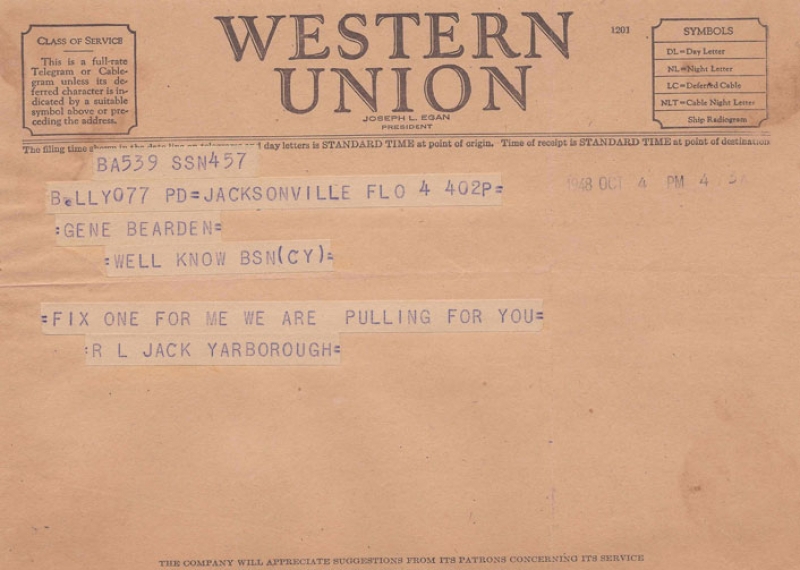 CLASS OF SERVICE
This is a full-rate
Telegram or Cable-
gram unless its de-
ferred character is in-
dicated by a suitable
symbol above or pre-
ceding the address.
WESTERN
UNION
JOSEPH L. EGAN
PRESIDENT
1201
SYMBOLS
DL=Day Letter
NL=Night Letter
LC=Deferred Cable
NLT=Cable Night Letter
Ship Radiogram
The filing time shown in the date line on telegrams and day letters is STANDARD TIME at point of origin. Time of receipt is STANDARD TIME at point of destination
BA539 SSN457
B.LLY077 PD=JACKSONVILLE FLO 4 402P=
1948 OCT 4 PM 4
=GENE BEARDEN=
=WELL KNOW BSN(CY)=
=FIX ONE FOR ME WE ARE PULLING FOR YOU=
=R L JACK YARBOROUGH=
THE COMPANY WILL APPRECIATE SUGGESTIONS FROM ITS PATRONS CONCERNING ITS SERVICE